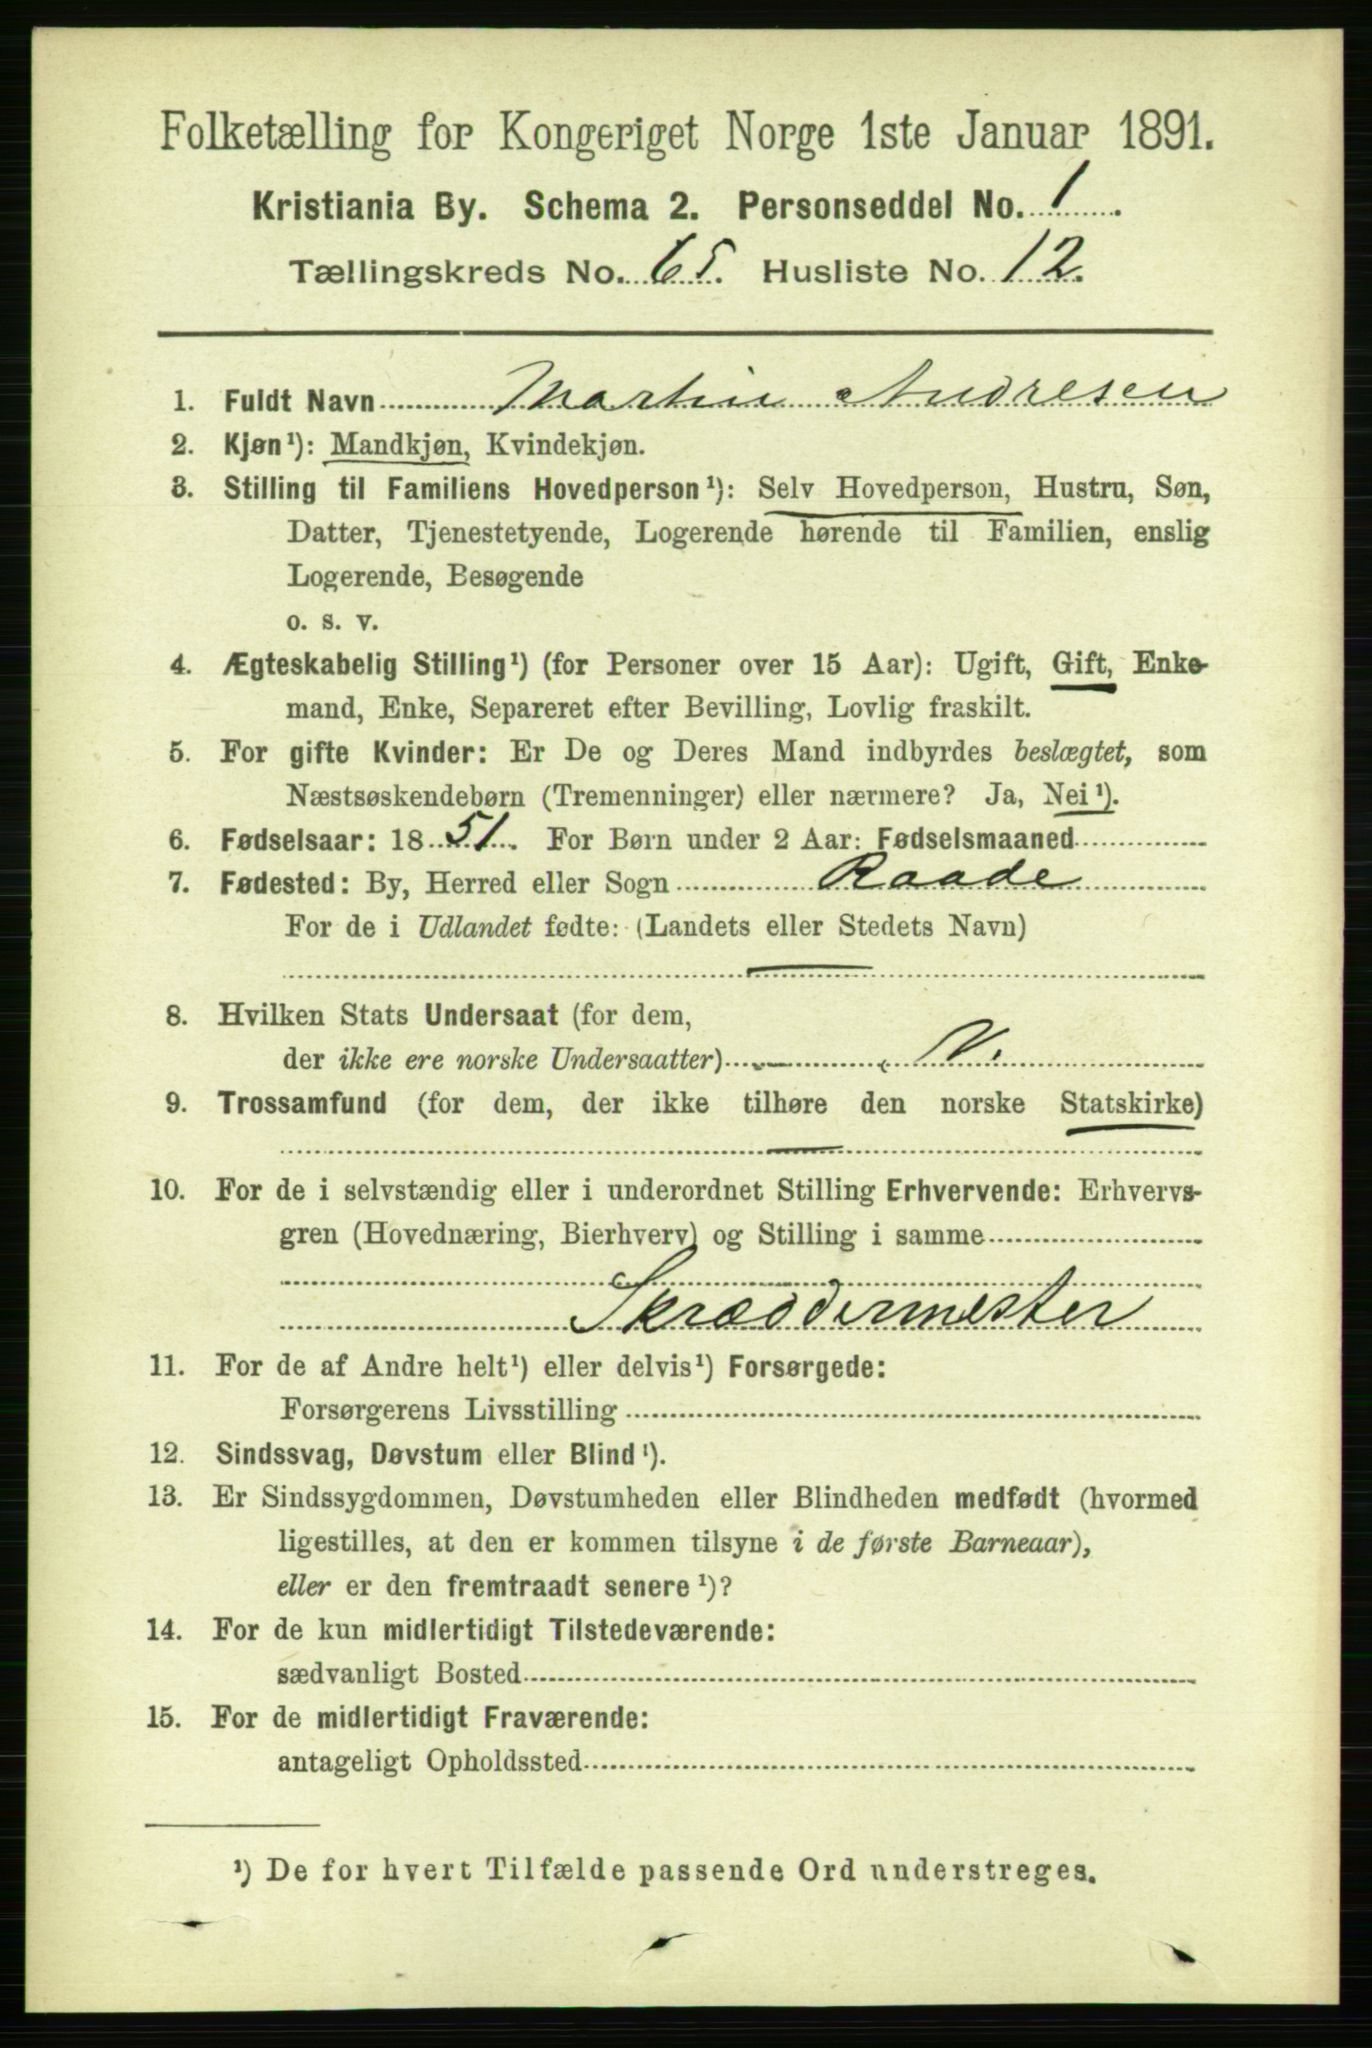 Folketælling for Kongeriget Norge 1ste Januar 1891.
Kristiania By. Schema 2. Personseddel No. 1.
Tællingskreds No. 65. Husliste No. 12.
1. Fuldt Navn Martin Andresen
2. Kjøn¹): Mandkjøn, Kvindekjøn.
3. Stilling til Familiens Hovedperson¹): Selv Hovedperson, Hustru, Søn,
Datter, Tjenestetyende, Logerende hørende til Familien, enslig
Logerende, Besøgende
o. s. v.
4. Ægteskabelig Stilling¹) (for Personer over 15 Aar): Ugift, Gift, Enke-
mand, Enke, Separeret efter Bevilling, Lovlig fraskilt.
5. For gifte Kvinder: Er De og Deres Mand indbyrdes beslægtet, som
Næstsøskendebørn (Tremenninger) eller nærmere? Ja, Nei¹).
6. Fødselsaar: 1851. For Børn under 2 Aar: Fødselsmaaned
7. Fødested: By, Herred eller Sogn Raade
For de i Udlandet fødte: (Landets eller Stedets Navn)
8. Hvilken Stats Undersaat (for dem,
der ikke ere norske Undersaatter) N.
9. Trossamfund (for dem, der ikke tilhøre den norske Statskirke)
10. For de i selvstændig eller i underordnet Stilling Erhvervende: Erhvervs-
gren (Hovednæring, Bierhverv) og Stilling i samme
Skræddermester
11. For de af Andre helt¹) eller delvis¹) Forsørgede:
Forsørgerens Livsstilling
12. Sindssvag, Døvstum eller Blind¹).
13. Er Sindssygdommen, Døvstumheden eller Blindheden medfødt (hvormed
ligestilles, at den er kommen tilsyne i de første Barneaar),
eller er den fremtraadt senere¹)?
14. For de kun midlertidigt Tilstedeværende:
sædvanligt Bosted
15. For de midlertidigt Fraværende:
antageligt Opholdssted
¹) De for hvert Tilfælde passende Ord understreges.